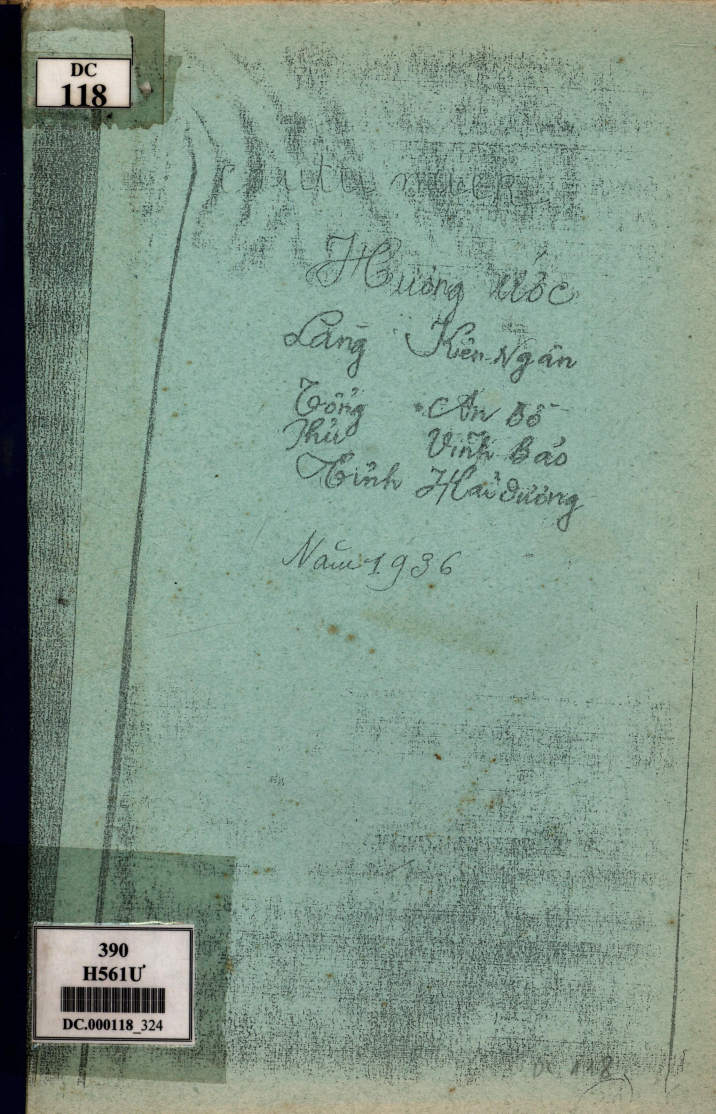 DC
118
Hương ước
Làng Kên Ngân
Tổng An Bồ
Phủ Vĩnh Bảo
Tỉnh Hải dương
Năm 1936
390
H561Ư
DC.000118_324
DC 118